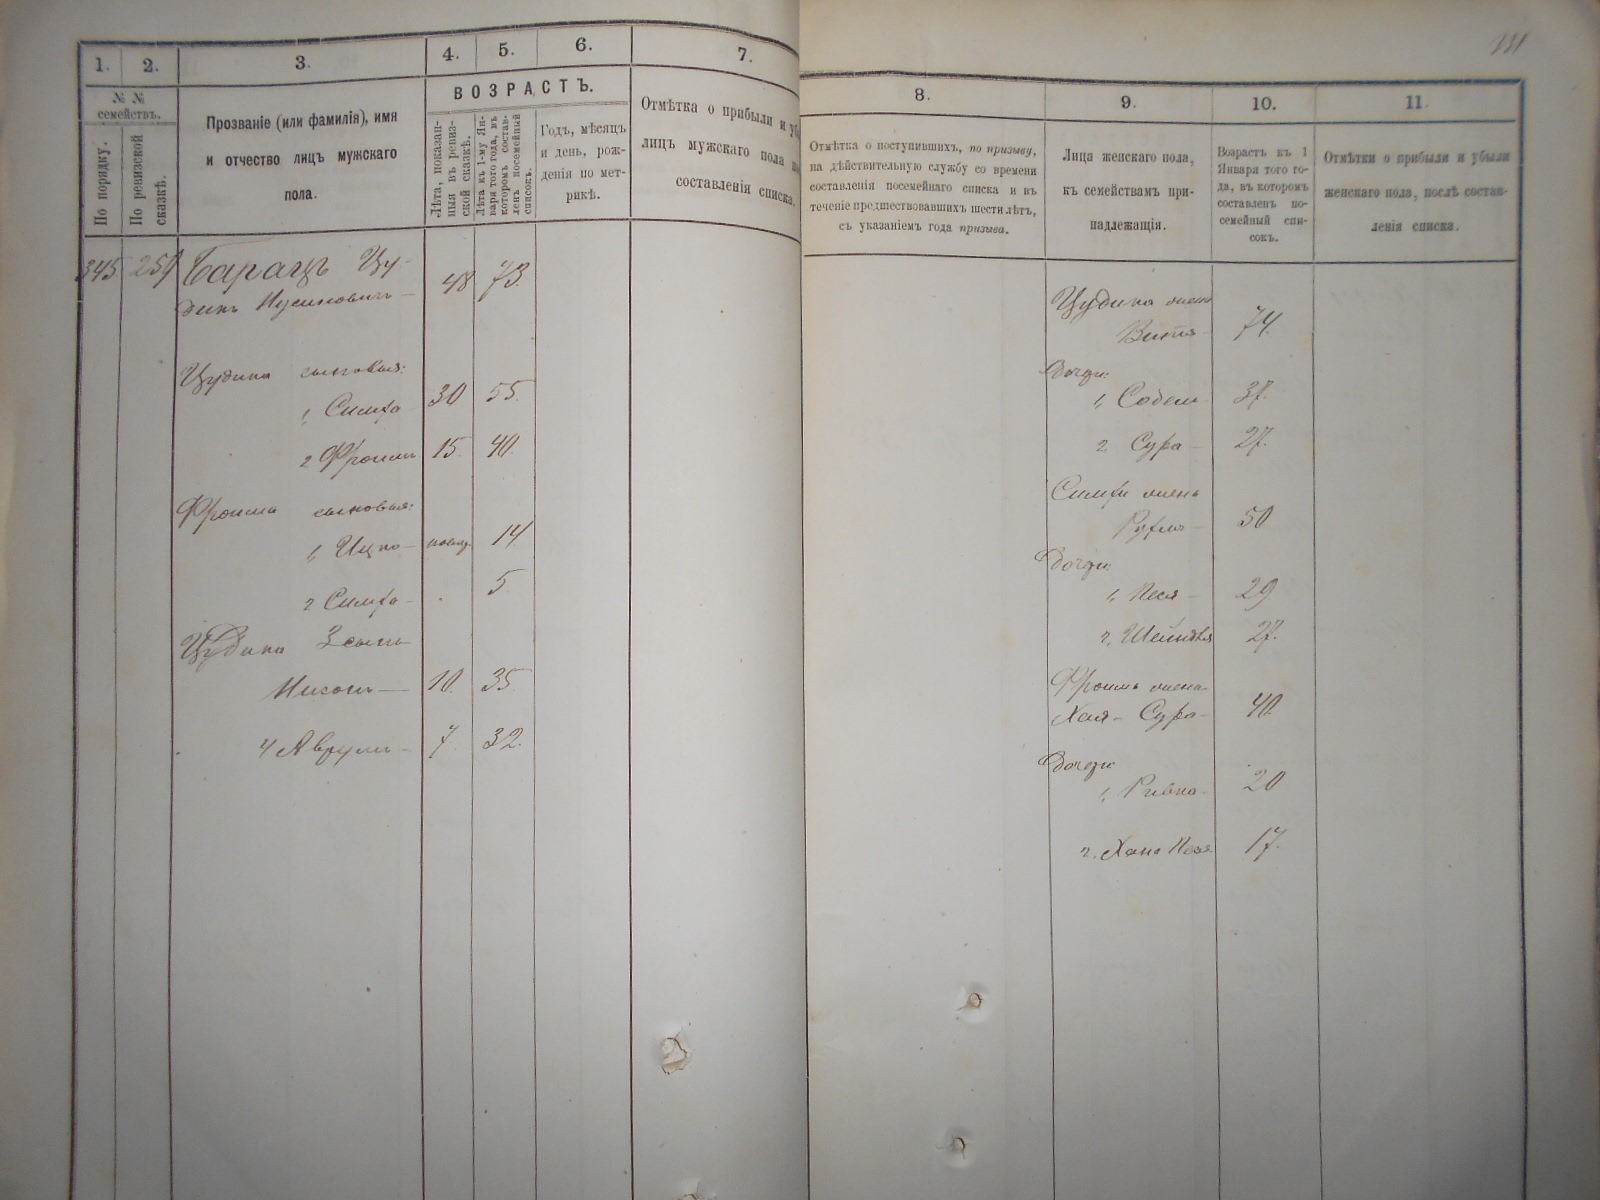 1. 2. 3. 4. 5. 6. 7.
ВОЗРАСТЪ.
№ №
семействъ.
По порядку.
По ревизской
сказкѣ.
Прозваніе (или фамилія), имя
и отчество лицъ мужскаго
пола.
Лѣта, показан-
ныя въ ревиз-
ской сказкѣ.
Лѣта къ 1-му Ян-
варя того года, въ
которомъ состав-
ленъ посемейный
списокъ.
Годъ, мѣсяцъ
и день, рож-
денія по мет-
рикѣ.
Отмѣтка о прибыли и
лицъ мужскаго пола
составленія списка.
345 259 Барацъ Цу-
динъ Нусиновичъ 48 73.
Цудина сыновья:
1, Симха 30 55.
2 Фроимъ 15. 40.
Фроима сыновья:
1, Ицко новор. 14
2 Симха - 5
Цудина 3 сынъ
Нисонъ 10. 35.
4 Аврумъ 7. 32.
8. 9. 10. 11.
Отмѣтка о поступившихъ, по призыву,
на дѣйствительную службу со времени
составленія посемейнаго списка и въ
теченіе предшествовавшихъ шести лѣтъ,
съ указаніемъ года призыва.
Лица женскаго пола,
къ семействамъ при-
надлежащія.
Возрастъ къ 1
Января того го-
да, въ которомъ
составленъ по-
семейный спи-
сокъ.
Отмѣтки о прибыли и убыли
женскаго пола, послѣ состав-
ленія списка.
Цудина жена
74.
Дочери:
1, 37.
2, Сура 27.
Симхи жена
Рухля 50
Дочери:
1, Песя 29
2, Шейндля 27.
Фроима жена
Хая-Сура 40.
Дочери:
1, Ривка 20
2. Хана Песя 17.